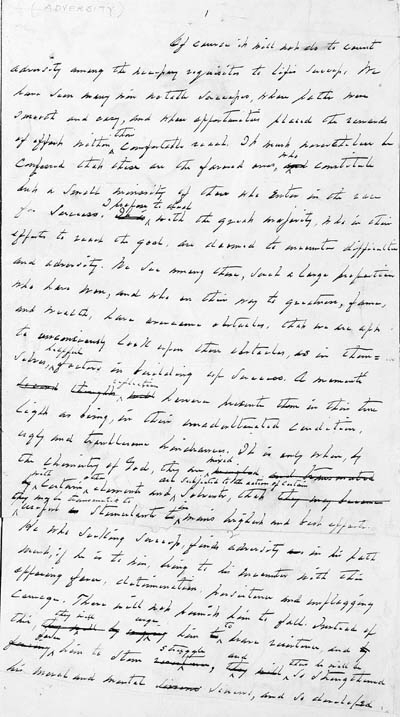 (ADVERSITY)
1
Of course it will not do to count
adversity among the necessary requisites to life's success. We
have seen many men notable successes, whose paths were
smooth and easy, and where opportunities placed the rewards
of effort within their comfortable reach. It must nevertheless be
confessed that these are the favored ones, who constitute
but a small minority of those who enter in the race
for success. I propose to deal with the great majority, who in their
efforts to reach the goal, are doomed to encounter difficulties
and adversity. We see among these, such a large proportion
who have won, and who on their way to greatness, fame,
and wealth, have overcome obstacles, that we are apt
to unconsciously look upon these obstacles, as in them=
selves, helpful factors in building up success. A moments
reflection however presents them in their true
light as being, in their unadulterated condition,
ugly and troublesome hindrances. It is only when, by
the chemistry of God, they are mixed
with certain other elements and are subjected to the action of certain solvents, that they may become
they may be transmuted to useful stimulants to man's highest and best efforts.
He who seeking success, finds adversity in his path
must, if he is to win, bring to his encounter with this
opposing force, determination, persistence and unflagging
courage. These will not permit him to fall. Instead of
this, they will urge him to brave resistance and
him to stern struggle and, thus he will be so strengthened
his moral and mental sinews, and so developed